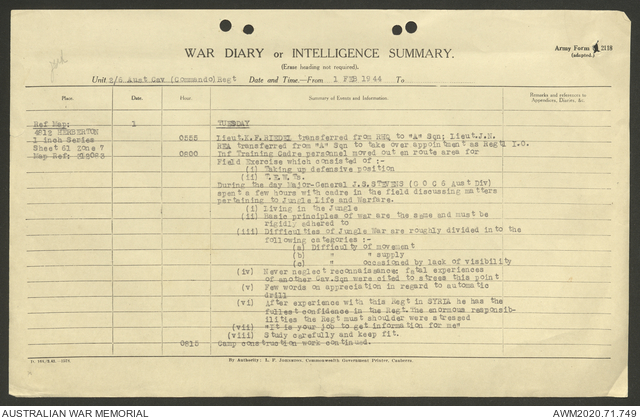 WAR DIARY or INTELLIGENCE SUMMARY.
Army Form 2118
(adapted.)
(Erase heading not required).
Unit 2/6 Aust Cav (Commando) Regt Date and Time.—From 1 FEB 1944 To
Place. Date. Hour. Summary of Events and Information. Remarks and references to
Appendices, Diaries, &c.
Ref Map: 1 TUESDAY
4912 PEMBERTON 0555 Lieut. K.F. RIEDEL transferred from RHQ to "A" Sqn; Lieut. J.N.
1 inch Series REA transferred from "A" Sqn to take over appointment as Regtl I.O.
Sheet 61 Zone 7 0800 Inf Training Cadre personnel moved out en route area for
Map Ref: Field Exercise which consisted of :-
(i) Taking up defensive position
(ii) T.E.W.Ts.
During the day Major-General J.S. STEVENS (G O C 6 Aust Div)
spent a few hours with cadre in the field discussing matters
pertaining to Jungle Life and Warfare.
(i) Living in the Jungle
(ii) Basic principles of war are the same and must be
rigidly adhered to
(iii) Difficulties of Jungle War are roughly divided into the
following categories :-
(a) Difficulty of movement
(b) " " supply
(c) " occasioned by lack of visibility
(iv) Never neglect reconnaissance; fatal experiences
of another Cav. Sqn were cited to stress this point
(v) Few words on appreciation in regard to automatic
drill
(vi) After experience with this Regt in SYRIA he has the
fullest confidence in the Regt. The enormous responsib-
ilities the Regt must shoulder were stressed
(vii) "It is your job to get information for me"
(viii) Study carefully and keep fit.
0815 Camp construction work continued.
By Authority: L. F. Johnston, Commonwealth Government Printer, Canberra.
AUSTRALIAN WAR MEMORIAL
AWM2020.71.749